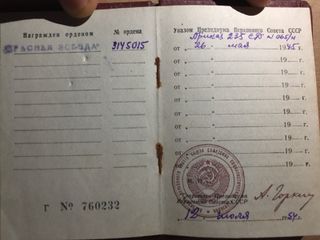 Награжден орденом
№ ордена
КРАСНАЯ ЗВЕЗДА
3145015
Г № 760232
Указом Президиума Верховного Совета СССР
Приказ 235 СД № 065/н
от 26 мая 1945 г.
от 19 г.
от 19 г.
от 19 г.
от 19 г.
от 19 г.
от 19 г.
от 19 г.
Секретарь Президиума
Верховного Совета СССР
А. Горкин
12 июля 1954 г.